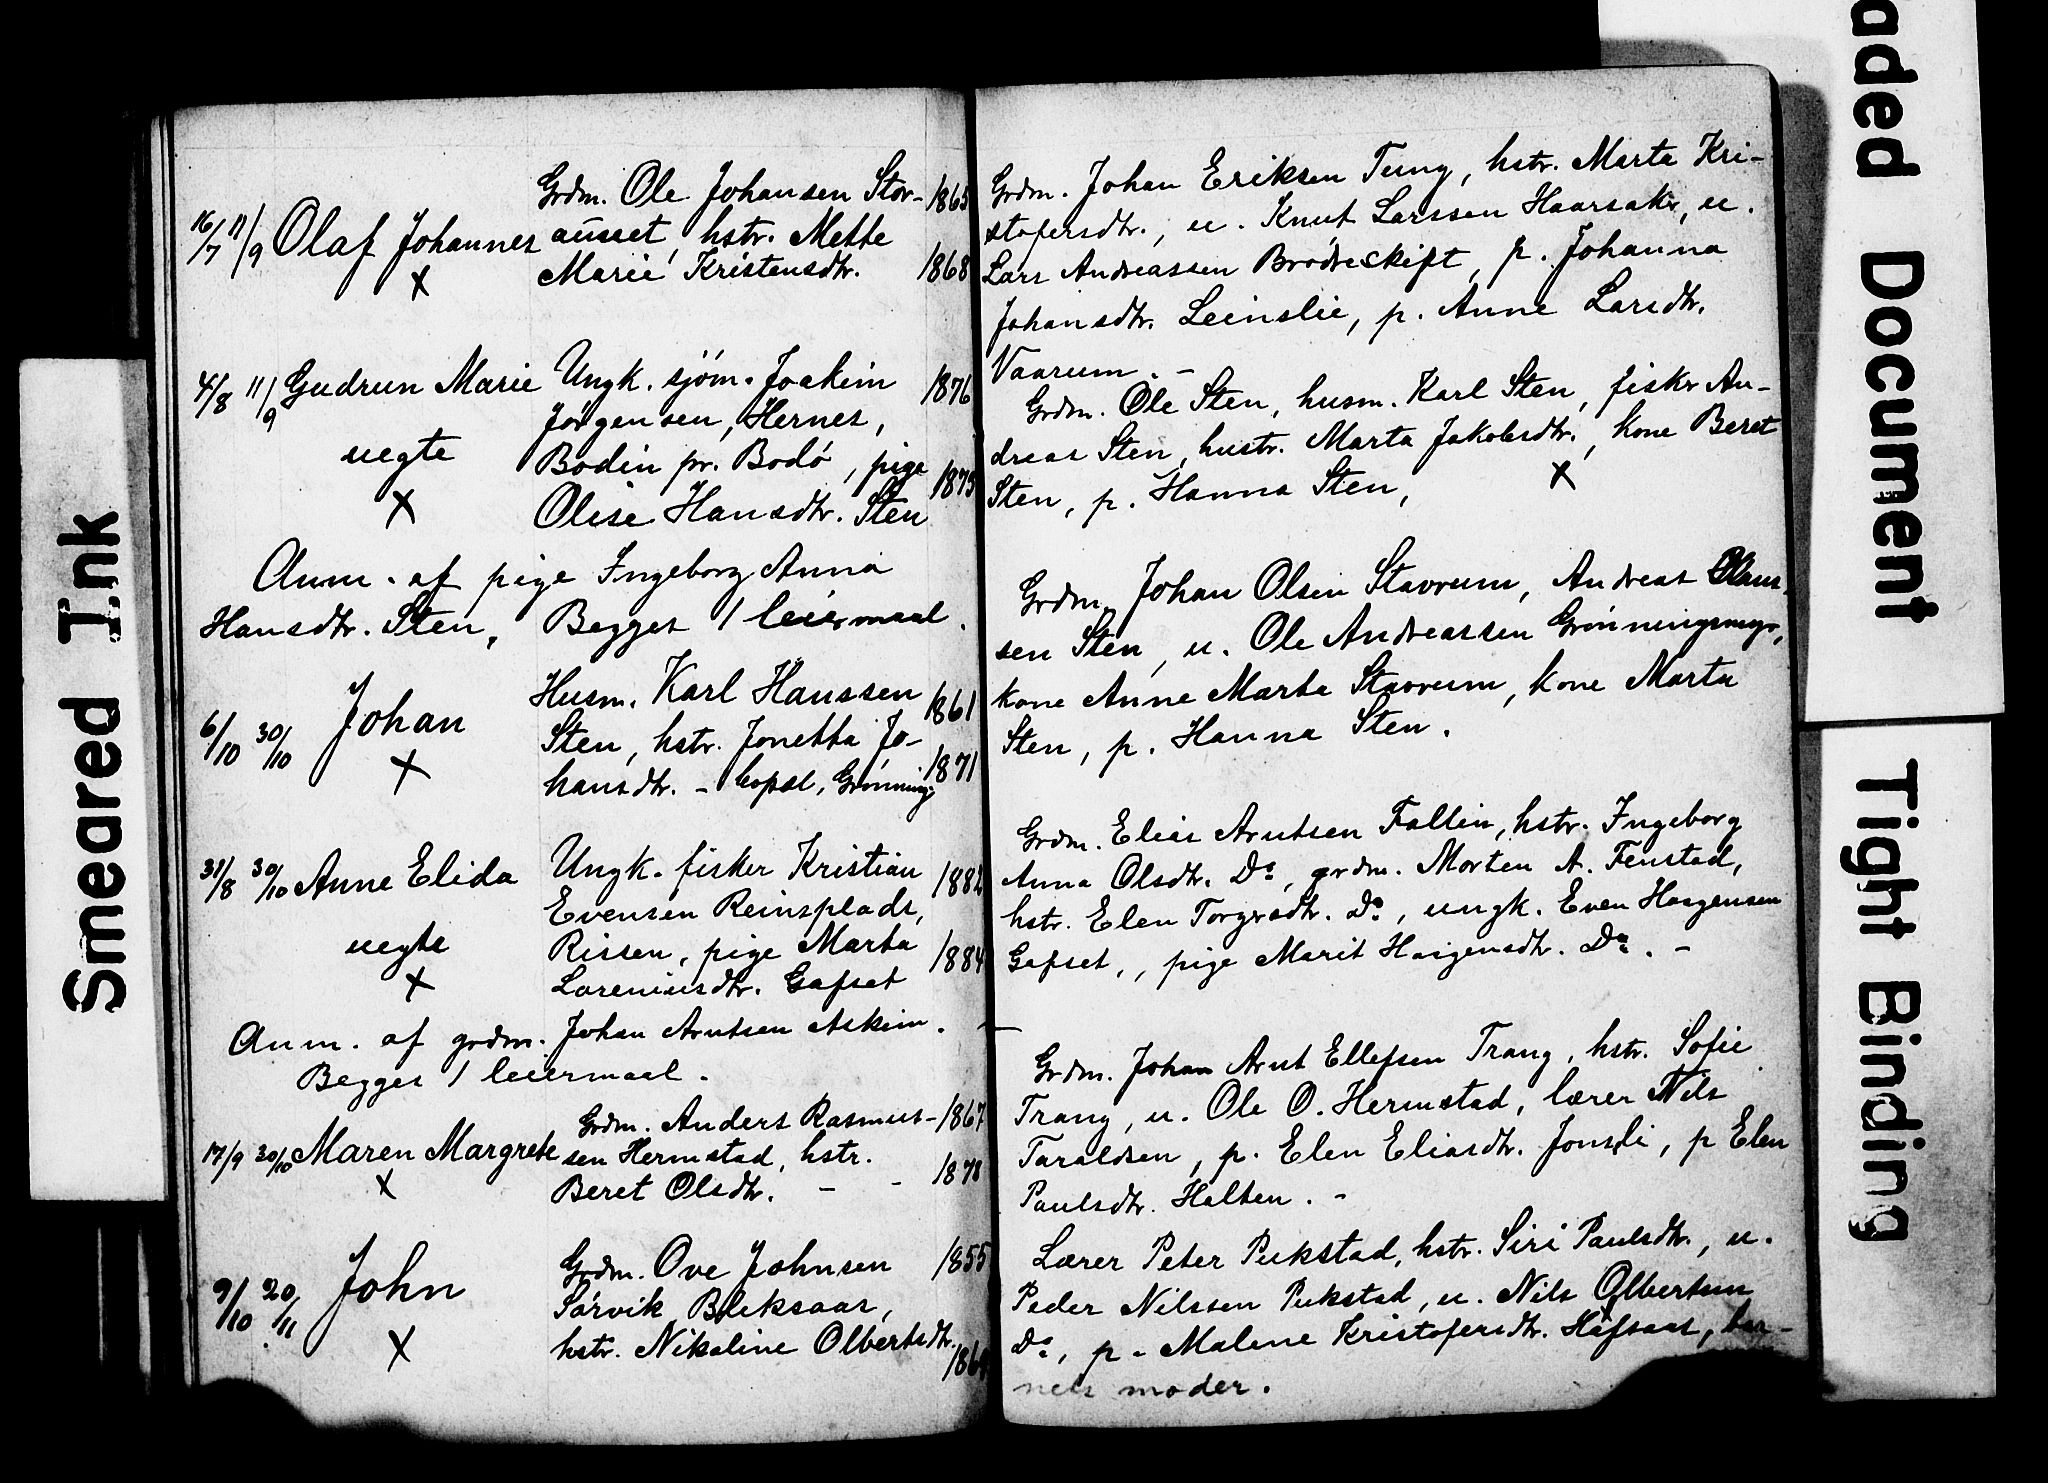 Grdm. Ole Johansen Stor- 1865
16/7 11/9 Olaf Johannes auset, hstr. Mette
X Marie Kristensdtr. 1868
4/8 11/9 Gudrun Marie Ungk. sjøm. Joakim 1876
Jørgensen, Hernes,
uegte Bodin pr. Bodø, pige 1873
X Olise Hansdtr. Sten
Anm. af pige Ingeborg Anna
Hansdtr. Sten, Begges 1 leiermaal.
Johan Husm. Karl Hanssen 1861
6/10 30/10 Sten, hstr. Jonetta Jo-
X hansdtr. - bopæl, Grønning 1871
31/8 30/10 Anne Elida Ungk. fisker Kristian 1882
Evensen Reinsplads,
uegte Rissen, pige Marta 1884
X Loreniusdtr. Gafset
Anm. af grdm. Johan Arntsen Askim. -
Begges 1 leiermaal.
Grdm. Anders Rasmus- 1867
17/9 30/10 Maren Margrete sen Hermstad, hstr.
X Beret Olsdtr. - - 1878
John Grdm. Ove Johnsen 1855
9/10 20/11 Sørvik Bleksaar,
X hstr. Nikoline Olbertsdtr.
Grdm. Johan Eriksen Tung, hstr. Marta Kri-
stofersdtr., u. Knut Larssen Haarsaker, u.
Lars Andreassen Brødreskift, p. Johanna
Johansdtr. Leinslie, p. Anne Larsdtr.
Vaarum. -
Grdm. Ole Sten, husm. Karl Sten, fisker An-
dreas Sten, hustr. Marta Jakobsdtr., kone Beret
Sten, p. Hanna Sten, X
Grdm. Johan Olsen Stavrum, Andreas
sen Sten, u. Ole Andreassen
kone Anne Marta Stavrum, kone Marta
Sten, p. Hanna Sten.
Grdm. Elias Arntsen Fallin, hstr. Ingeborg
Anna Olsdtr. Do, grdm. Morten A. Fenstad,
hstr. Elen Torgersdtr. Do, ungk. Even Haagensen
Gafset,, pige Marit Haagensdtr. Do. -
Grdm. Johan Arnt Ellefsen Trang, hstr. Sofie
Trang, u. Ole O. Hermstad, lærer Nils
Taraldsen, p. Elen Eliasdtr. Jonsli, p Elen
Paulsdtr. Halten. -
Lærer Peter Pukstad, hstr. Siri Paulsdtr., u.
Peder Nilssen Pukstad, u. Nils Olbertsen
Do, p. Malene Kristofersdtr. Hafsaas, bar-
nets moder.
Smeared Ink
aded Document
Tight Binding